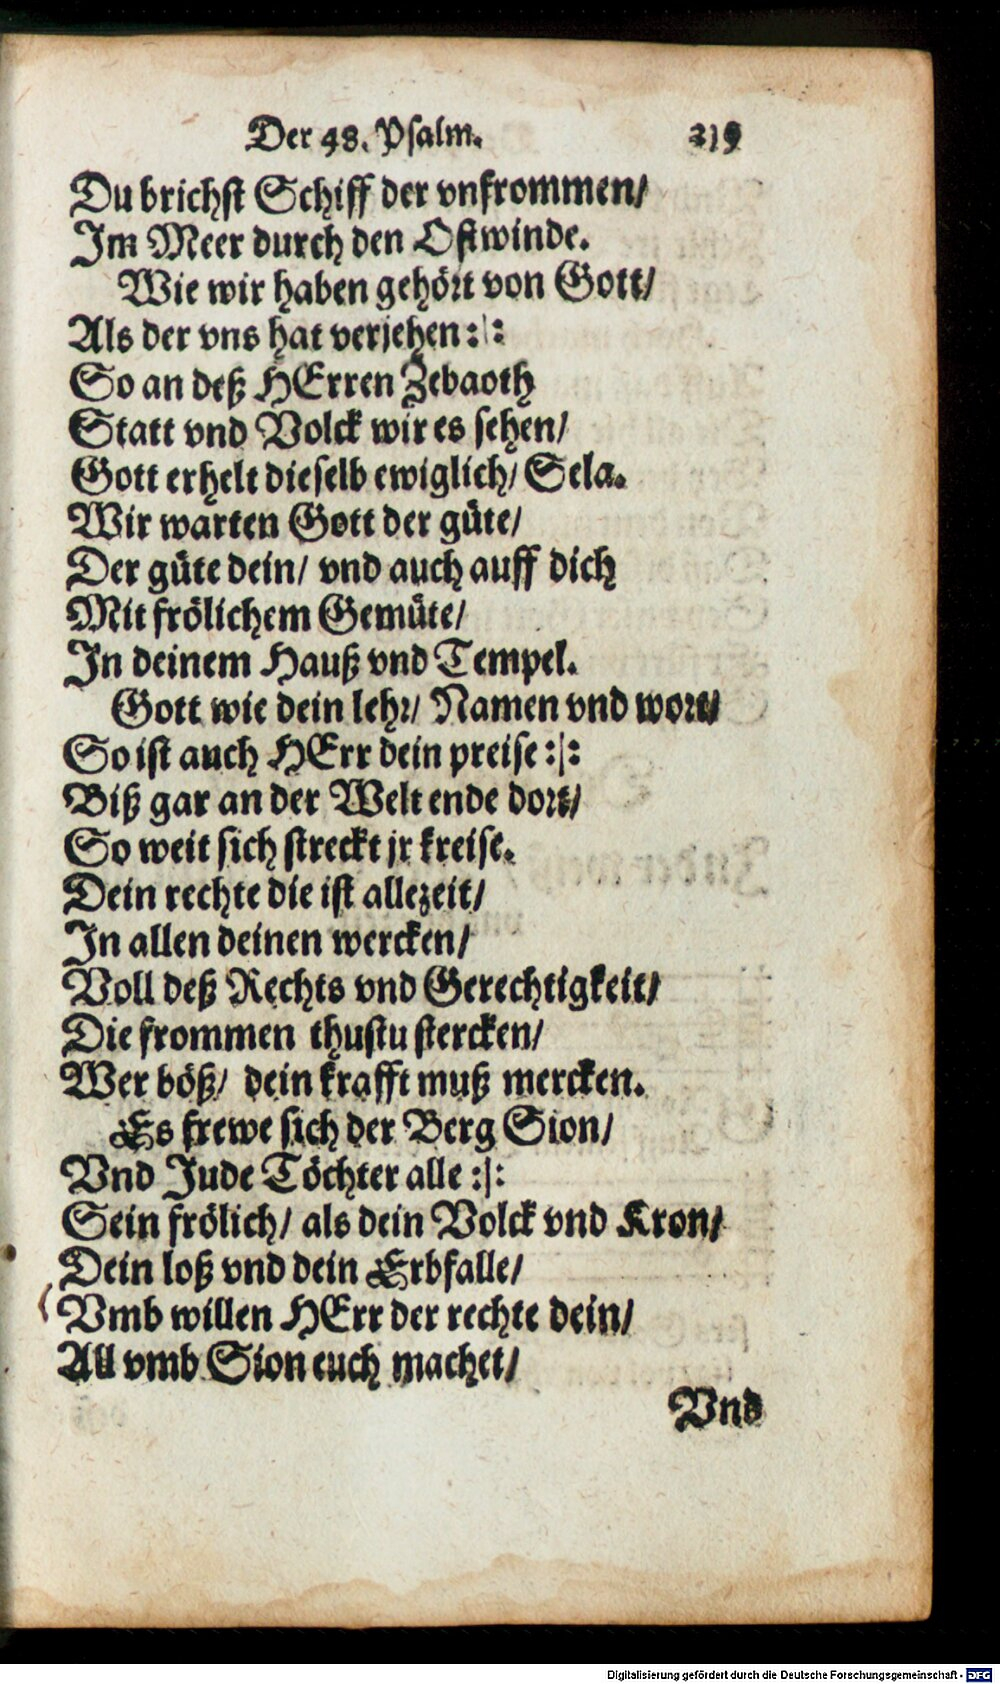 Der 48. Psalm. 219
Du brichst Schiff der vnfrommen/
Im Meer durch den Ostwinde.
Wie wir haben gehört von Gott/
Als der vns hat verjehen :|:
So an deß HErren Zebaoth
Statt vnd Volck wir es sehen/
Gott erhelt dieselb ewiglich/ Sela.
Wir warten Gott der güte/
Der güte dein/ vnd auch auff dich
Mit frölichem Gemüte/
In deinem Hauß vnd Tempel.
Gott wie dein lehr/ Namen vnd wort/
So ist auch HErr dein preise :|:
Biß gar an der Welt ende dort/
So weit sich streckt jr kreise.
Dein rechte die ist allezeit/
In allen deinen wercken/
Voll deß Rechts vnd Gerechtigkeit/
Die frommen thustu stercken/
Wer böß/ dein krafft muß mercken.
Es frewe sich der Berg Sion/
Vnd Jude Töchter alle :|:
Sein frölich/ als dein Volck vnd Kron/
Dein loß vnd dein Erbfalle/
Vmb willen HErr der rechte dein/
All vmb Sion euch machet/
Vnd
Digitalisierung gefördert durch die Deutsche Forschungsgemeinschaft - DFG